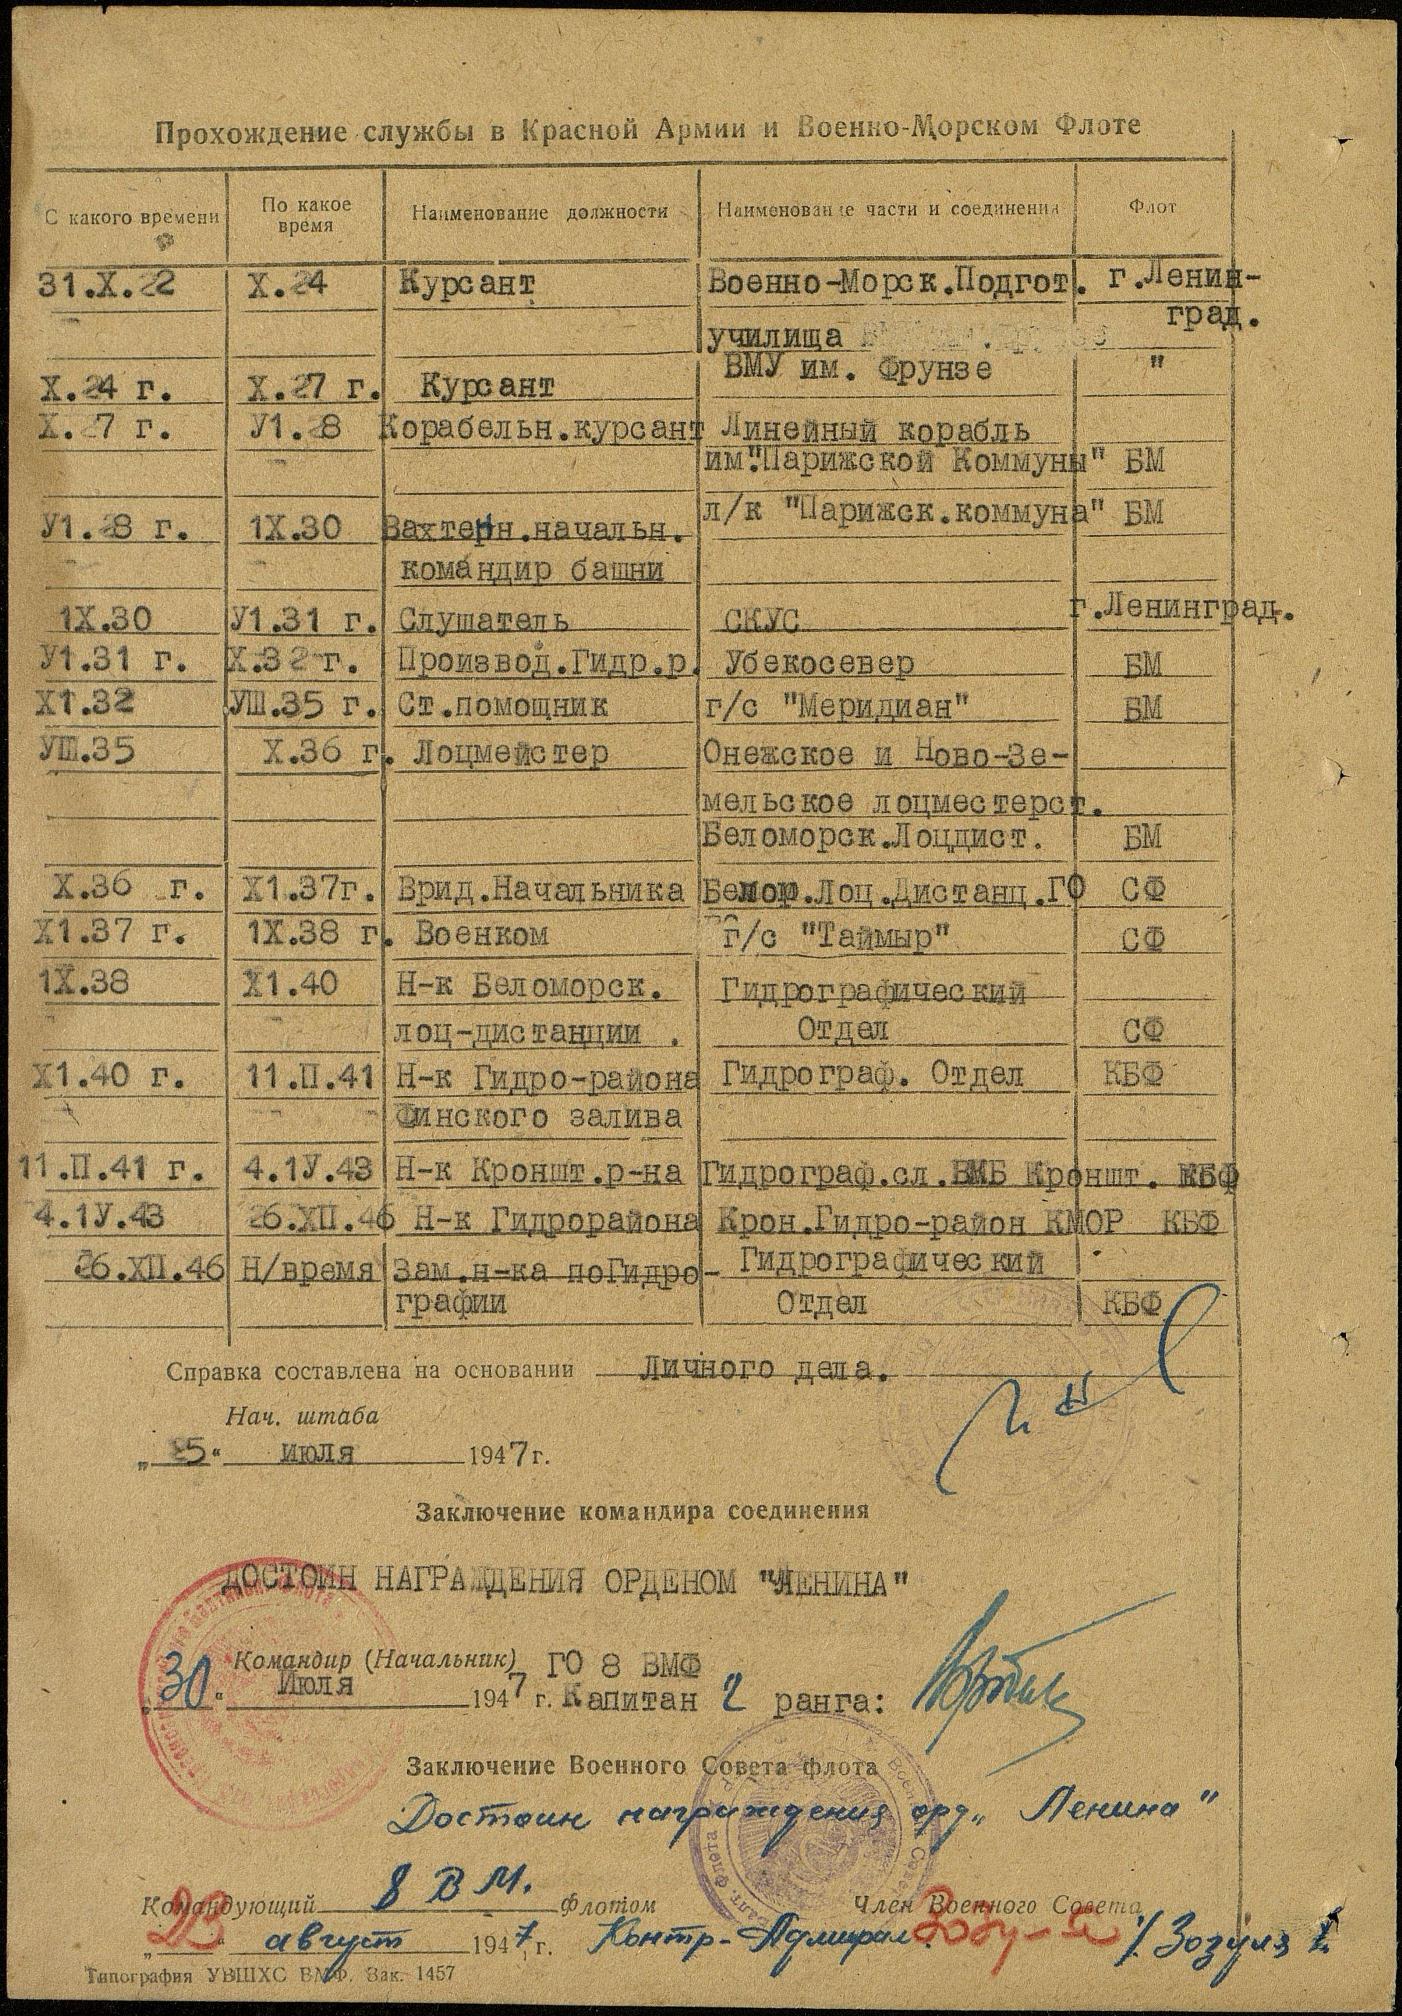 Прохождение службы в Красной Армии и Военно-Морском Флоте
С какого времени По какое время Наименование должности Наименование части и соединения Флот
31.X.22 X.24 Курсант Военно-Морск.Подгот. г.Ленин-
училища град.
X.24 г. X.27 г. Курсант ВМУ им. Фрунзе "
X.27 г. У1.28 Корабельн.курсант Линейный корабль
им."Парижской Коммуны" БМ
У1.28 г. 1X.30 Вахтенн.начальн. л/к "Парижск.коммуна" БМ
командир башни
1X.30 У1.31 г. Слушатель СКУС г.Ленинград.
У1.31 г. X.32 г. Производ.Гидр.р. Убекосевер БМ
X1.32 УШ.35 г. Ст.помощник г/с "Меридиан" БМ
УШ.35 X.36 г. Лоцмейстер Онежское и Ново-Зе-
мельское лоцместерст.
Беломорск.Лоцдист. БМ
X.36 г. X1.37г. Врид.Начальника Беломор.Лоц.Дистанц.ГО СФ
X1.37 г. 1X.38 г. Военком г/с "Таймыр" СФ
1X.38 X1.40 Н-к Беломорск. Гидрографический
лоц-дистанции . Отдел СФ
X1.40 г. 11.П.41 Н-к Гидро-района Гидрограф. Отдел КБФ
Финского залива
11.П.41 г. 4.1У.43 Н-к Кроншт.р-на Гидрограф.сл.ВМБ Кроншт. КБФ
4.1У.43 26.XП.46 Н-к Гидрорайона Крон.Гидро-район КМОР КБФ
26.XП.46 Н/время Зам.н-ка поГидро- Гидрографический
графии Отдел КБФ
Справка составлена на основании Личного дела.
Нач. штаба
„25“ июля 1947г.
Заключение командира соединения
ДОСТОИН НАГРАЖДЕНИЯ ОРДЕНОМ "ЛЕНИНА"
Командир (Начальник) ГО 8 ВМФ
„30“ Июля 1947 г. Капитан 2 ранга:
Заключение Военного Совета флота
Достоин награждения орд„ Ленина"
Командующий 8 ВМ. флотом Член Военного Совета
„23“ август 1947 г. Контр-Адмирал. /Зозуля/
Типография УВШХС ВМФ. Зак. 1457